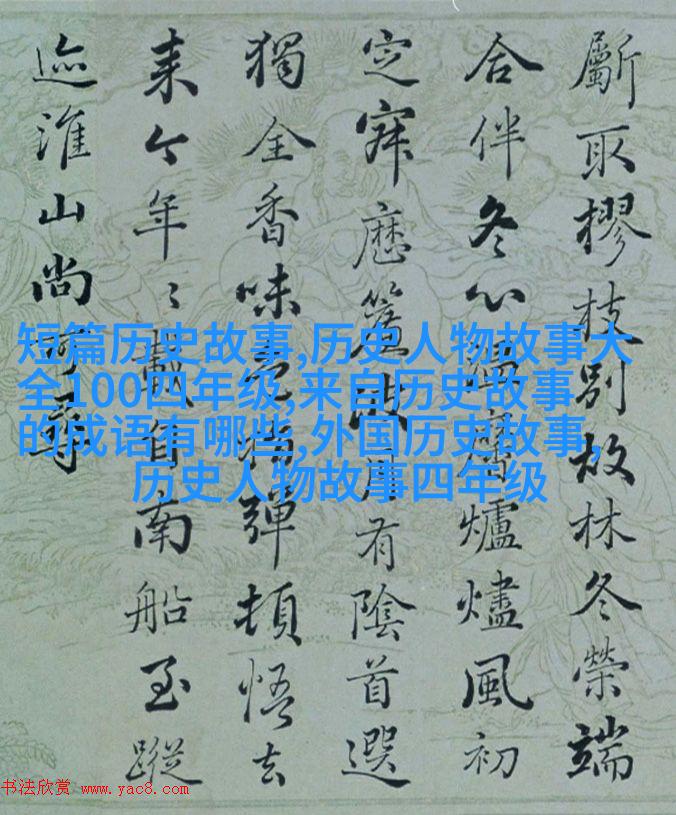 斸取樛枝別故林冬榮端
合伴冬心爐燼風初
定寐歷簾波月有陰首選
獨全香味色指彈頓悟去
来今年〻載自南船至蹤
迹淮山尚可尋
短篇历史故事,历史人物故事大
全100四年级,来自历史故事
的成语有哪些,外国历史故事,
历史人物故事四年级
书法欣赏 www.yac8.com